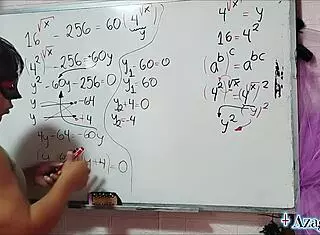 16^√x - 256 = 60(4^√x)
(4²)^√x - 256 = 60y
y² - 60y - 256 = 0
y -64
y +4
4y - 64y = -60y
y + 4) = 0
y₁ - 60 = 0
y₁ = 60
y₂ + 4 = 0
y₂ = -4
4^√x = y
16 = 4²
(a^b)^c = a^bc
(4²)^√x = (4^√x)²
y²
+ Azag